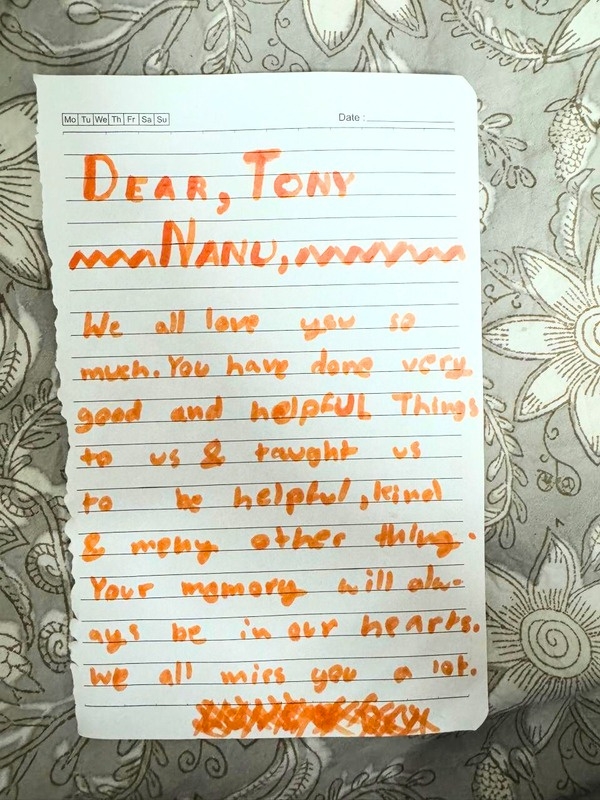 Mo Tu We Th Fr Sa Su
Date :
DEAR, TONY
NANU,
We all love you so
much. You have done very
good and helpFUL Things
to us & taught us
to be helpful, kind
& meny other thing.
Your mamory will alw-
ays be in our hearts.
We all miss you a lot.